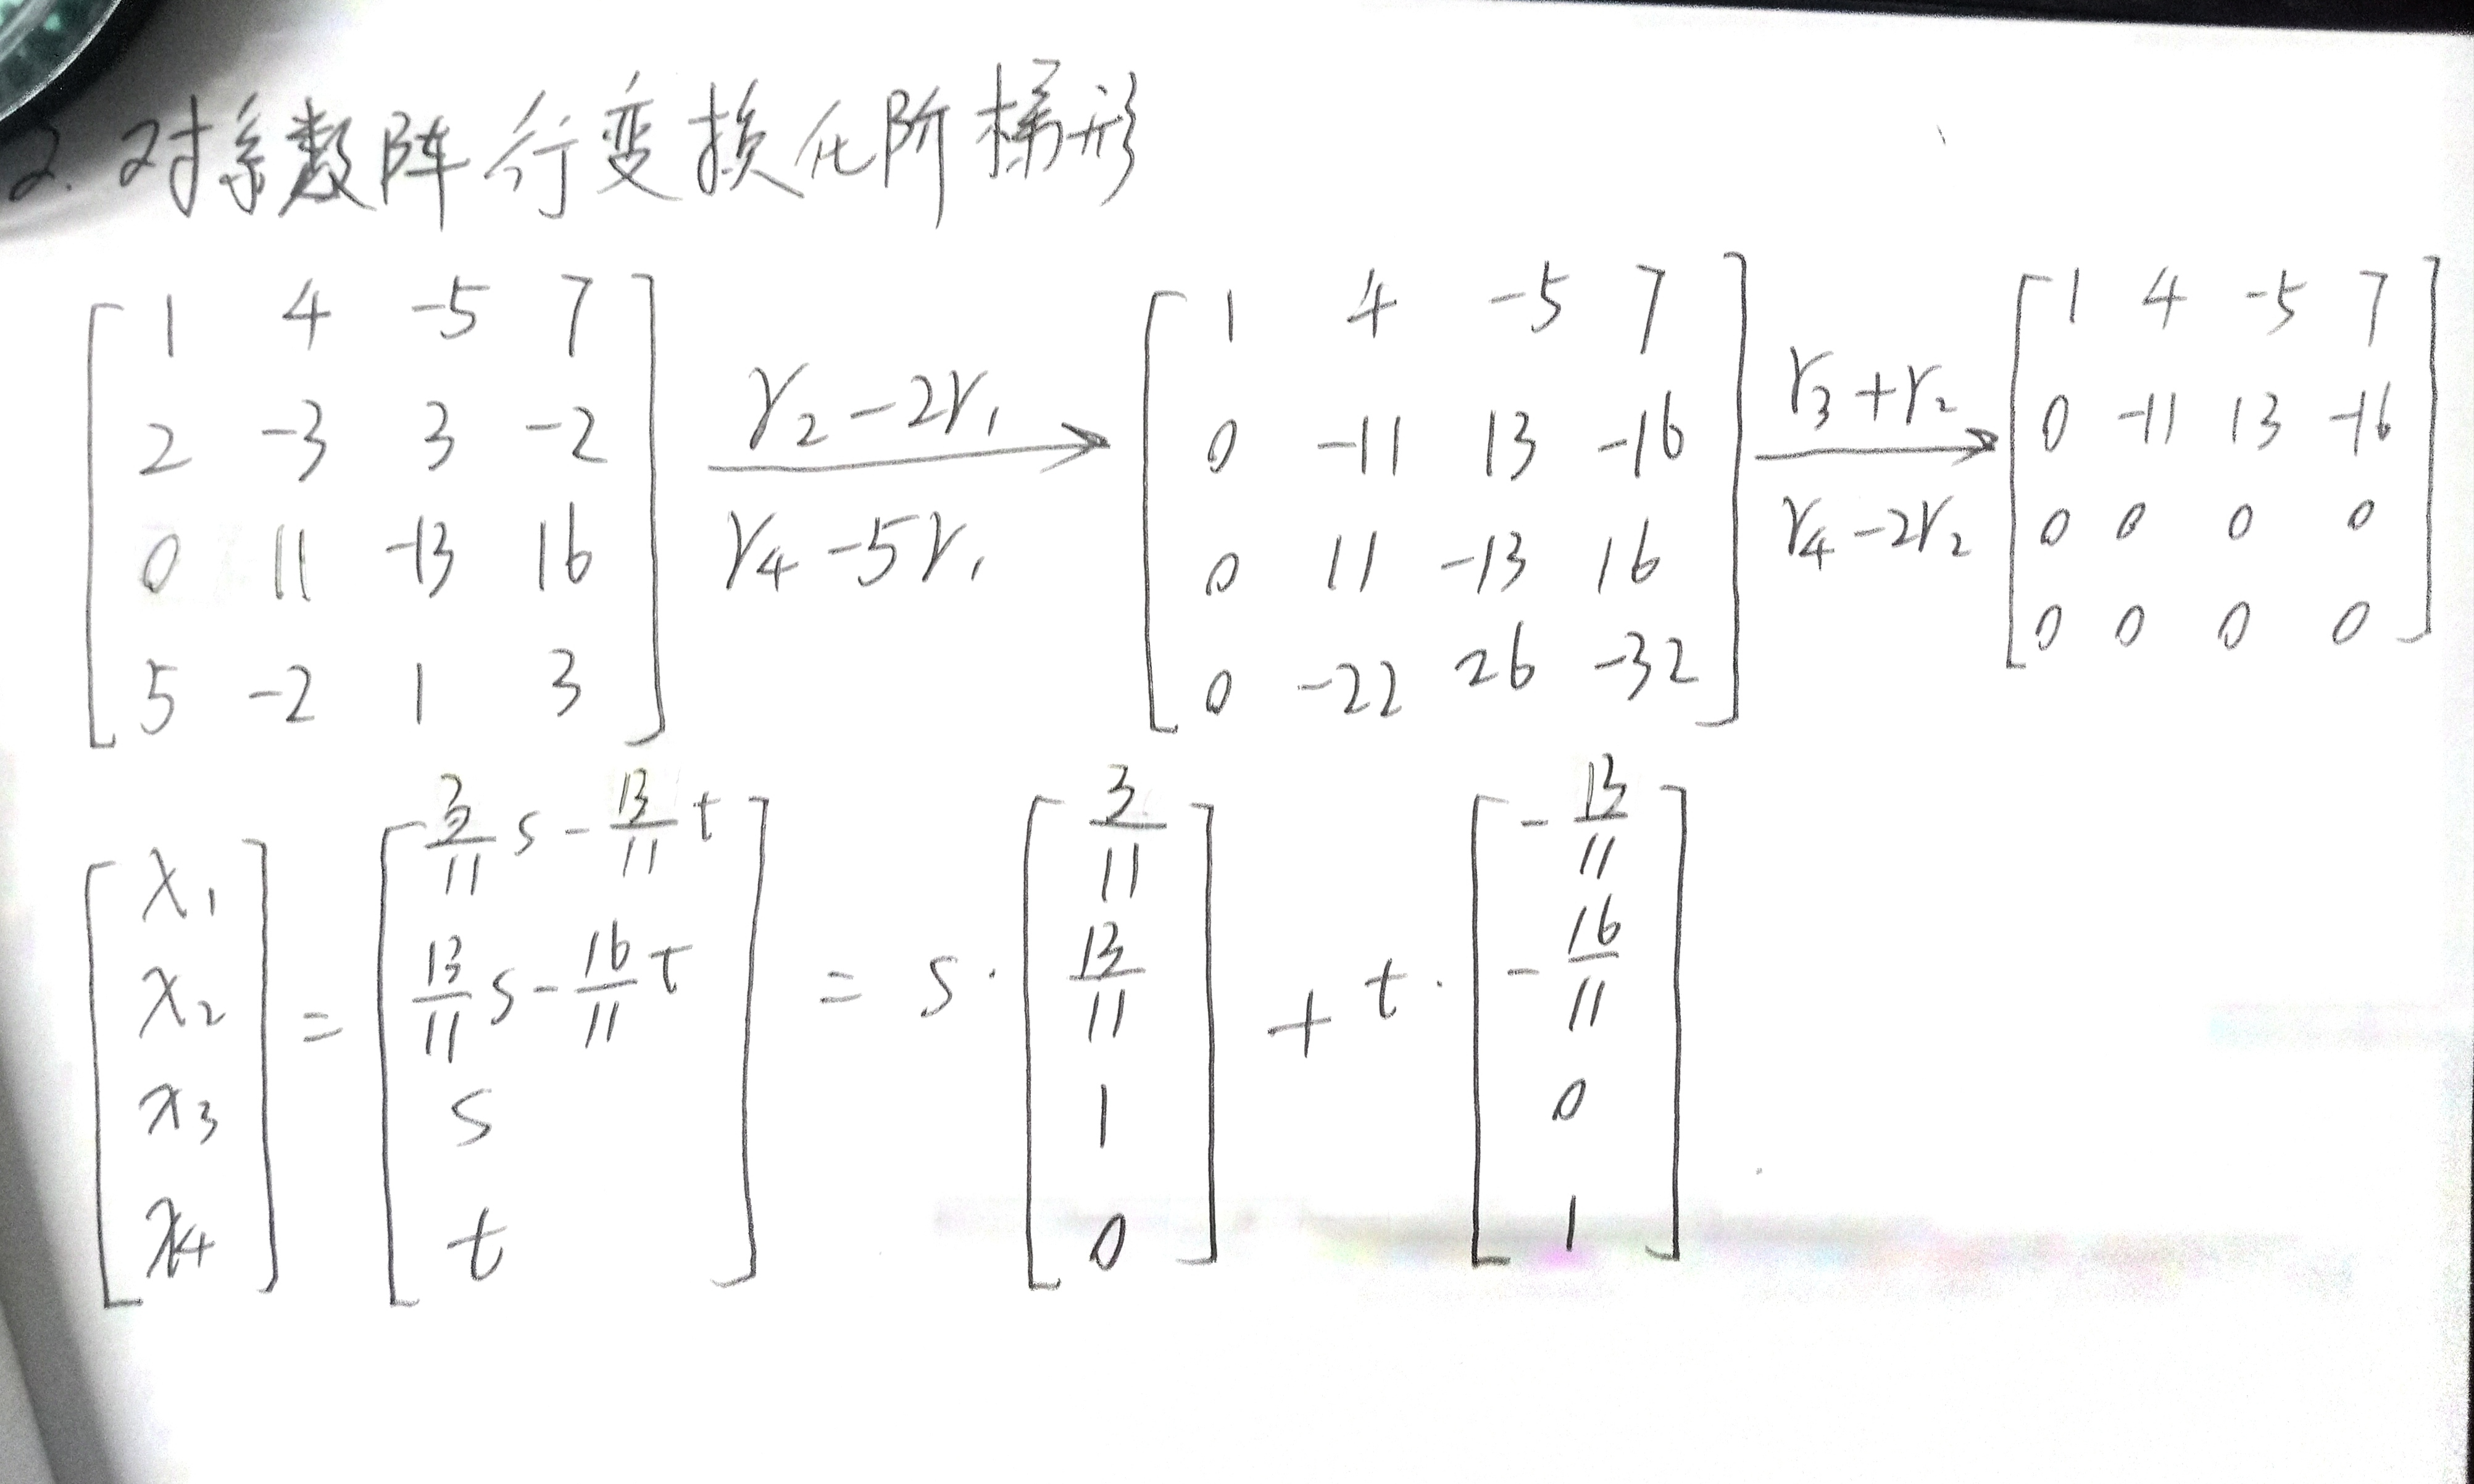 2. 对系数阵行变换化阶梯形
[1 4 -5 7; 2 -3 3 -2; 0 11 -13 16; 5 -2 1 3] r₂-2r₁ r₄-5r₁ → [1 4 -5 7; 0 -11 13 -16; 0 11 -13 16; 0 -22 26 -32] r₃+r₂ r₄-2r₂ → [1 4 -5 7; 0 -11 13 -16; 0 0 0 0; 0 0 0 0]
[x₁; x₂; x₃; x₄] = [3/11 s - 13/11 t; 13/11 s - 16/11 t; s; t] = s · [3/11; 13/11; 1; 0] + t · [-13/11; -16/11; 0; 1]